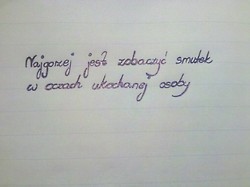 Najgorzej jest zobaczyć smutek
w oczach ukochanej osoby